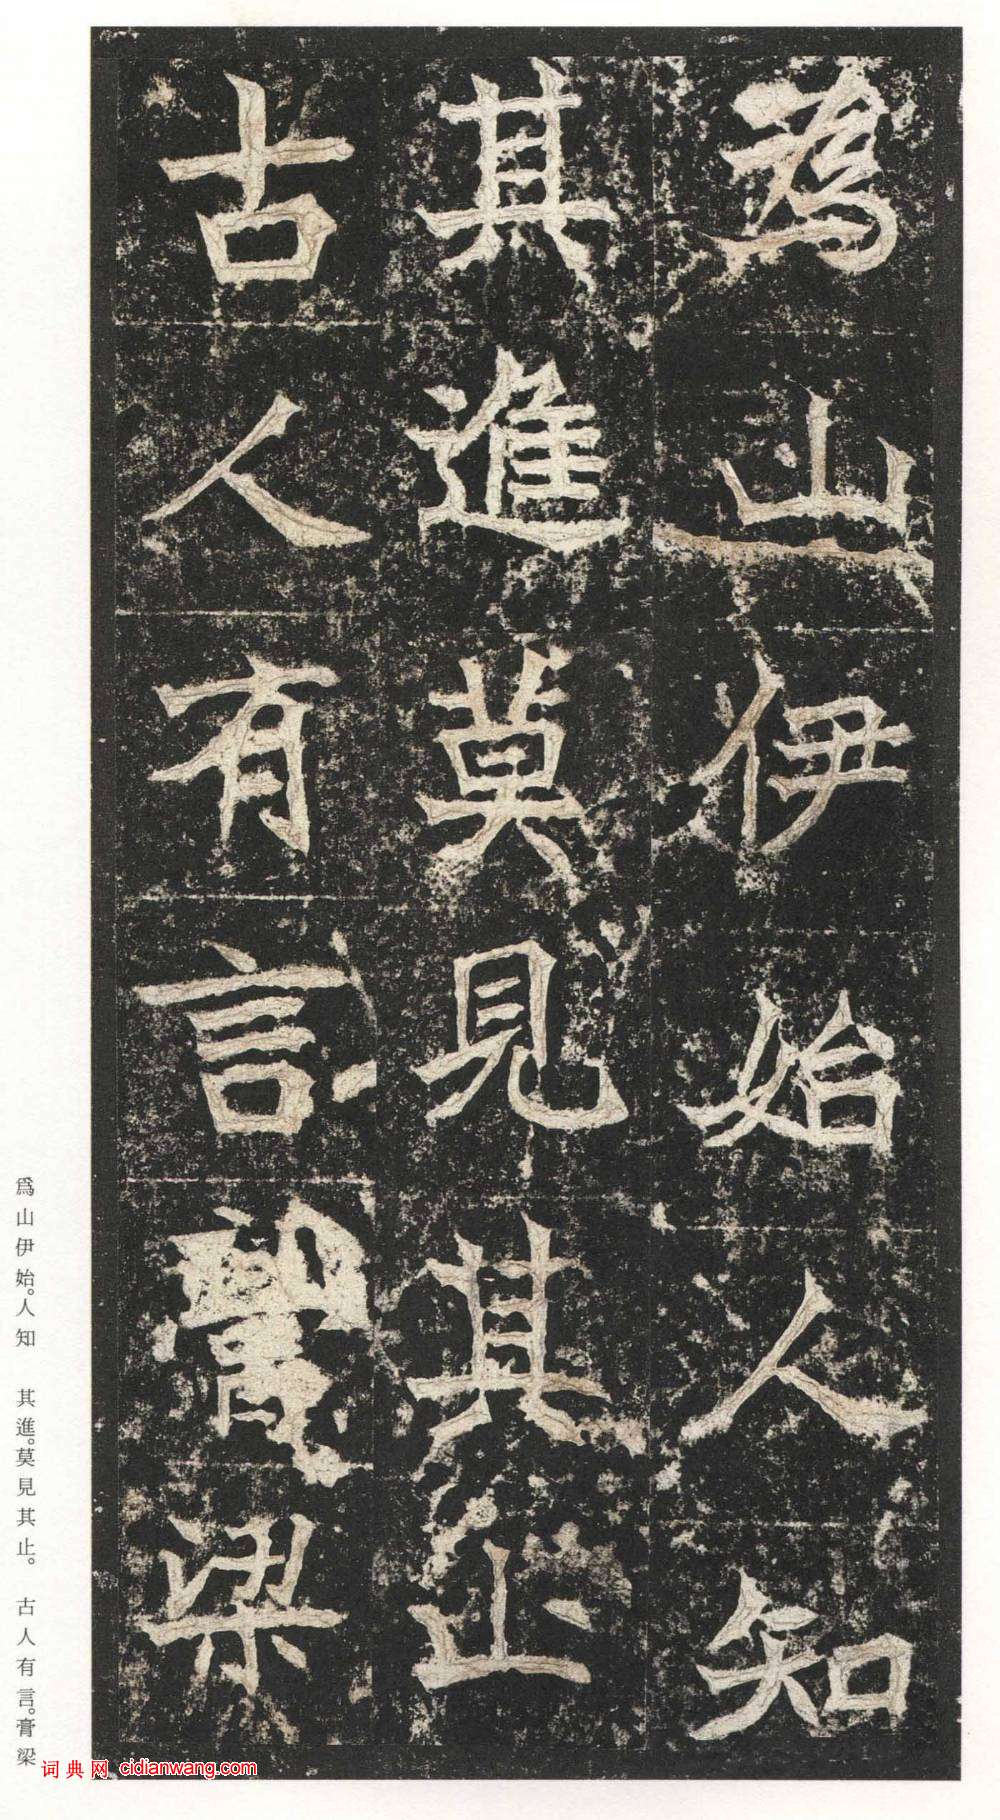 爲山伊始人知
其進莫見其止
古人有言膏梁
爲山伊始。人知 其進。莫見其止。 古人有言。膏梁
词典网 cidianwang.com